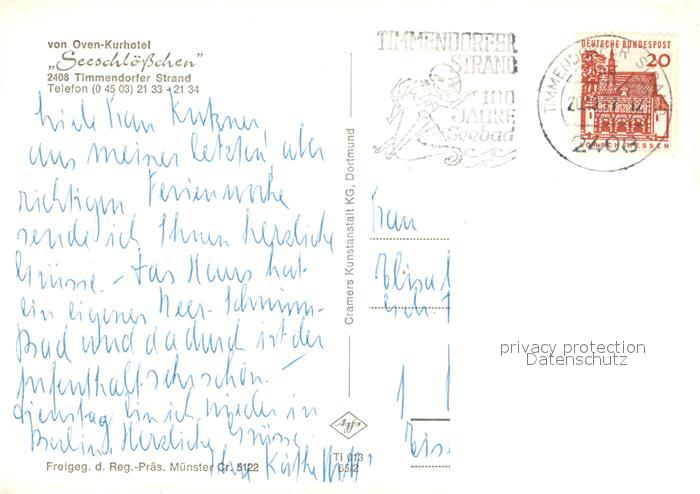 von Oven-Kurhotel
„Seeschlößchen"
2408 Timmendorfer Strand
Telefon (0 45 03) 21 33 + 21 34
Liebe Frau Kutzner,
aus meiner letzten, aber
richtigen Ferienwoche
sende ich Ihnen herzliche
Grüsse. – Das Haus hat
ein eigenes Meer-Schwimm-
Bad und dadurch ist der
Aufenthalt sehr schön. –
Dienstag bin ich wieder in
Berlin. Herzliche Grüsse
Ihre Käthe
Freigeg. d. Reg.-Präs. Münster Cr. 5122
Cramers Kunstanstalt KG, Dortmund
Agfa
TI 013
65/2
TIMMENDORFER
STRAND
100
JAHRE
Seebad
TIMMENDORFER STRAND
2408
DEUTSCHE BUNDESPOST
20
LORSCH/HESSEN
Frau
privacy protection
Datenschutz